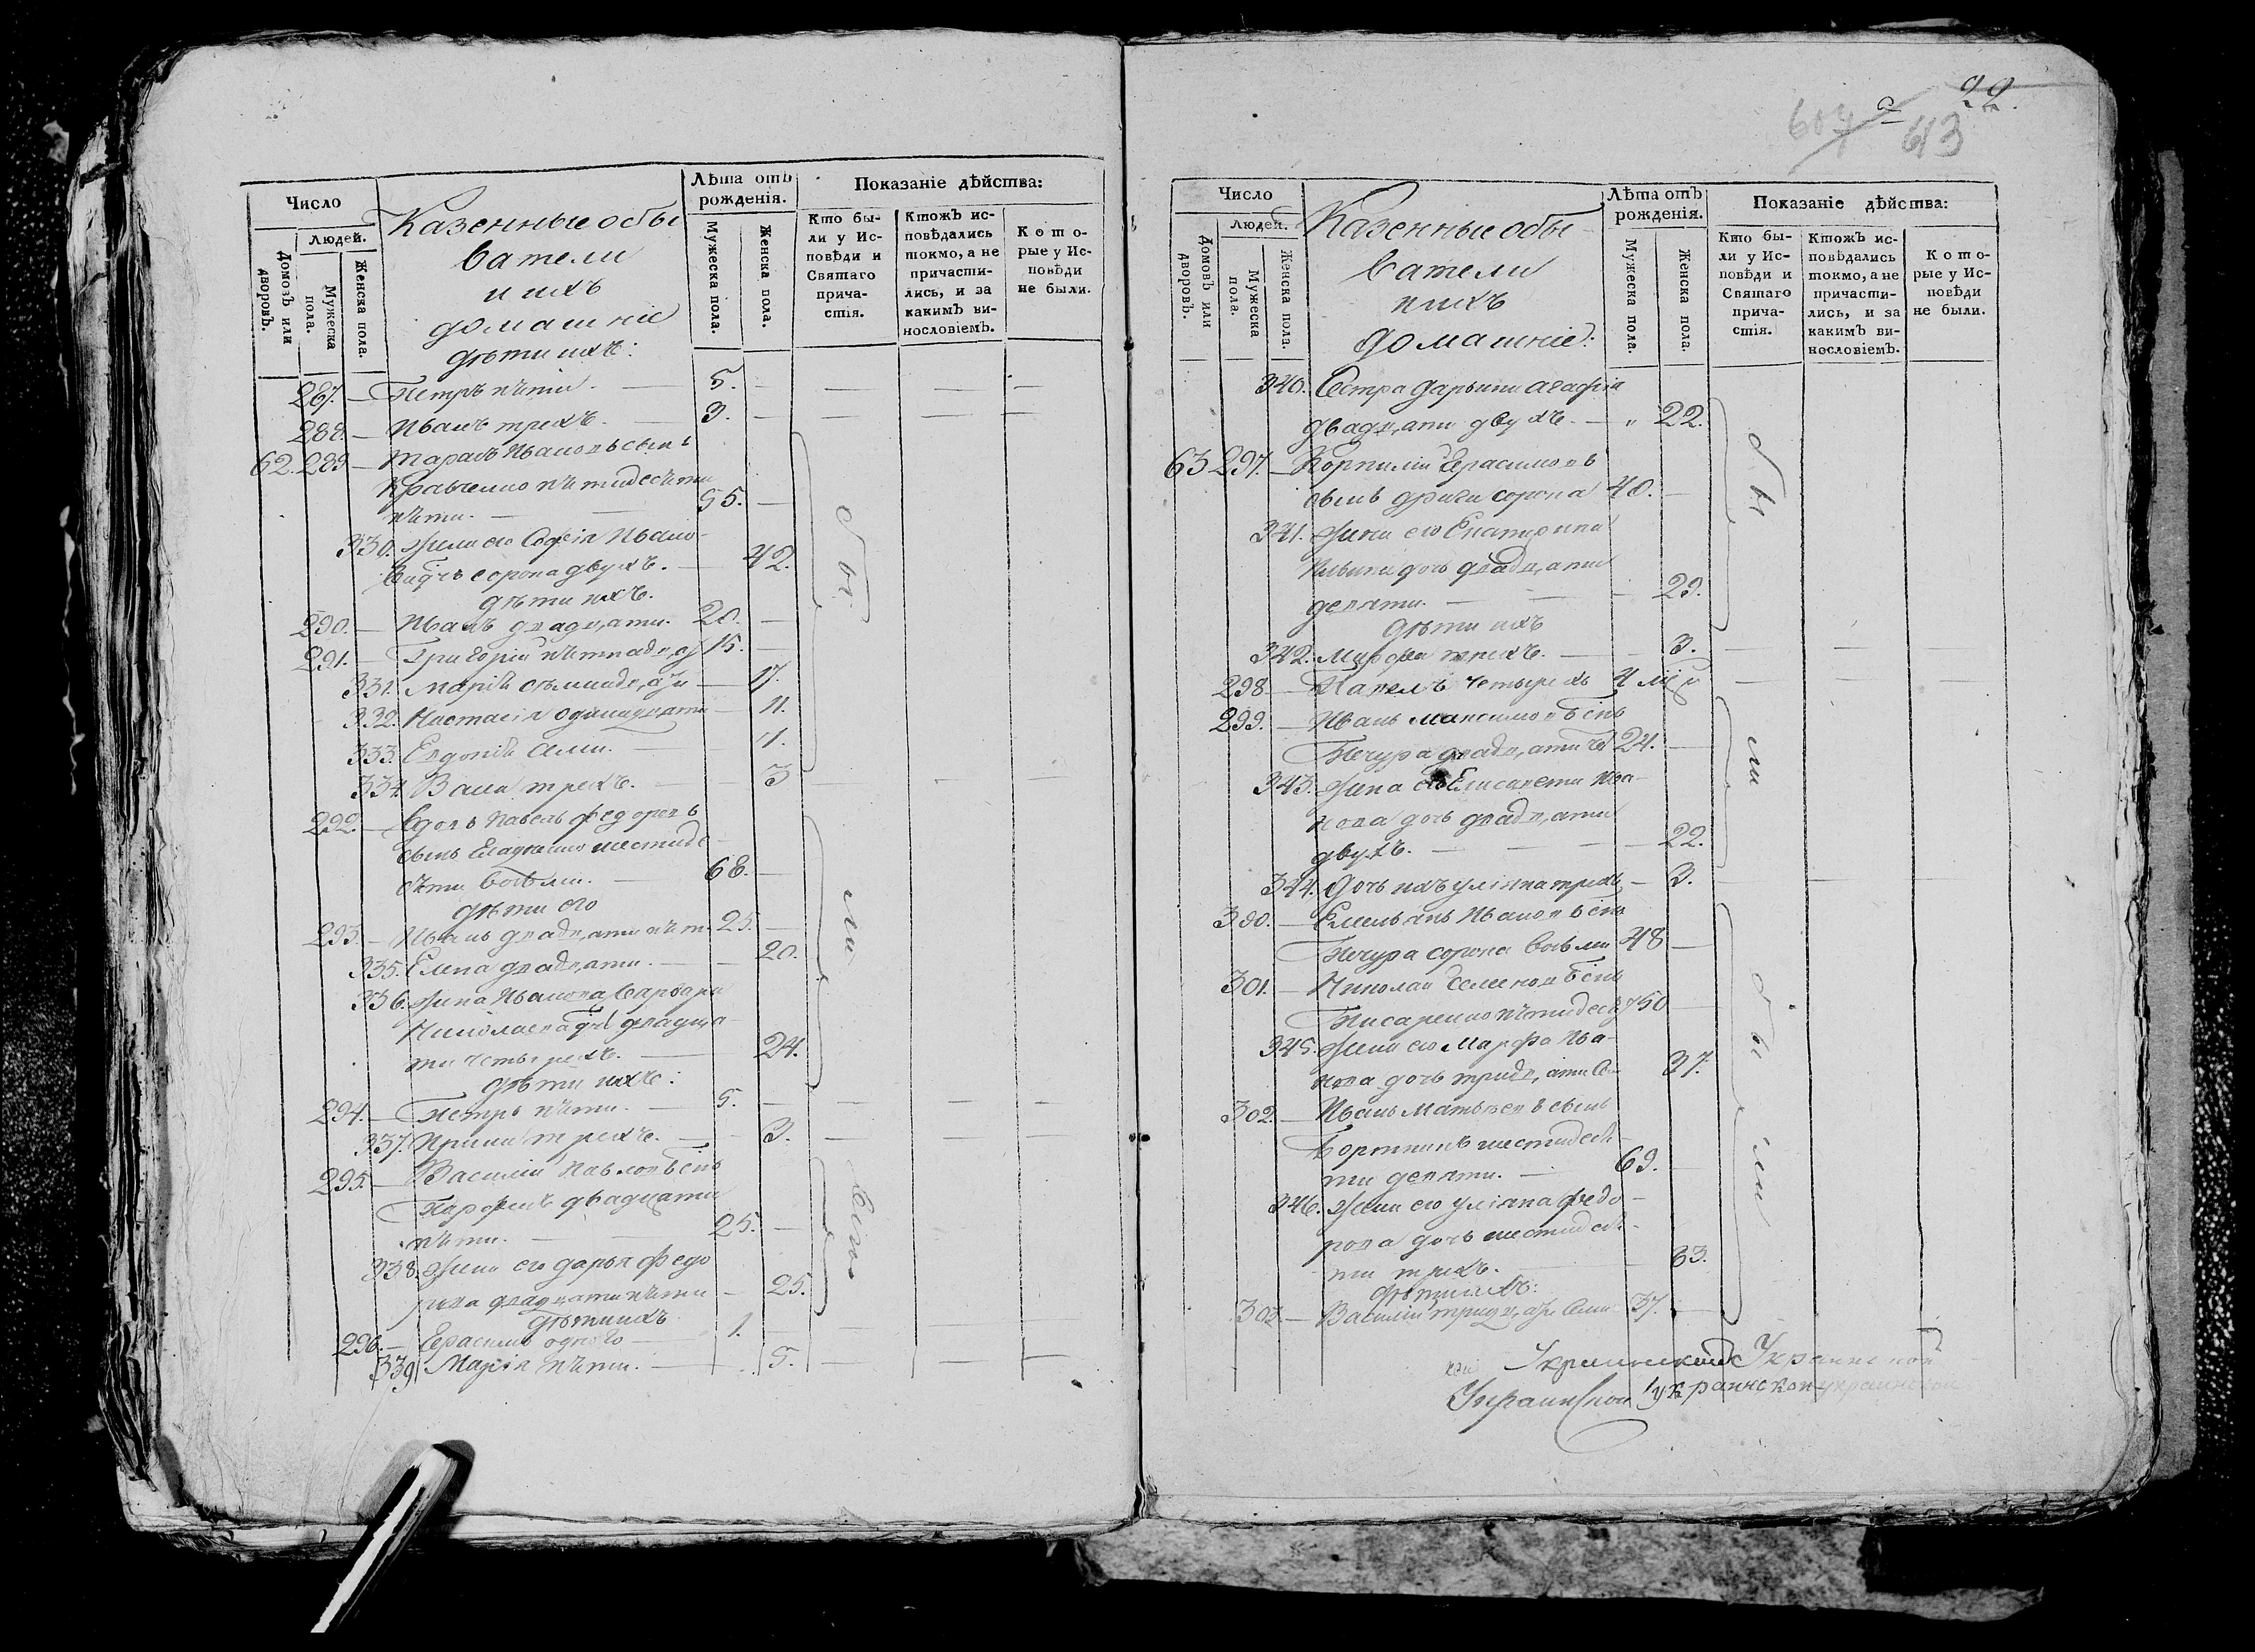 Число
Людей.
Домовъ или дворовъ.
Мужеска пола.
Женска пола.
Казенные обы
ватели
и ихъ
домашніе
дѣти ихъ:
Лѣта отъ рожденія.
Мужеска пола.
Женска пола.
Показаніе дѣйства:
Кто бы-
ли у Ис-
повѣди и
Святаго
прича-
стія.
Ктожъ ис-
повѣдались
токмо, а не
причасти-
лись, и за
какимъ ви-
нословіемъ.
Кото-
рые у Ис-
повѣди
не были.
287. — Петръ пѣти. — 5. — — — —
288. — Иванъ трехъ. — 3. — — — —
62. 289 — Тарасъ Ивановъ сынъ
Кравченко пѣтидесѣти
пѣти. — 55. —
330. жена его Софія Ивано-
ва дчь сорока двухъ. — 42.
дѣти ихъ.
290. — Иванъ двадцати. 20. —
291. — Григорій 15. —
331. Марія 17.
332. Настасія одинадцати — 11.
333. Евдокія
334. трехъ. — 3 — — —
292. — Вдовъ Павелъ Федоровъ
сынъ шестиде-
сѣти восьми. — 68. —
дѣти его
293. — Иванъ двадцати пѣти 25. —
335. Елена двадцати. — 20.
336. жена Иванова Варвара
Николаева дчь двадца-
ти четырехъ. — 24.
дѣти ихъ:
294. — Петръ пѣти. — 5. — — — —
337. Ирина трехъ. — 3. — — —
295. — Василій Павловъ снъ
двадцати
пѣти. — 25. —
338. жена его Дарья Федо
рова двадцати пѣти — 25.
дѣти ихъ
296. — Герасимъ одного — 1. — — —
339. Марія пѣти. — 5. — —
бы
ли
22.
604
613
Число
Людей.
Домовъ или дворовъ.
Мужеска пола.
Женска пола.
Казенные обы-
ватели
и ихъ
домашніе:
Лѣта отъ рожденія.
Мужеска пола.
Женска пола.
Показаніе дѣйства:
Кто бы-
ли у Ис-
повѣди и
Святаго
прича-
стія.
Ктожъ ис-
повѣдались
токмо, а не
причасти-
лись, и за
какимъ ви-
нословіемъ.
Кото-
рые у Ис-
повѣди
не были.
340. Сестра Дарьина Агафія
двадцати двухъ. — „ 22.
63 297. — Корнилій Герасимовъ
сынъ сорока 40. —
341. жена его Екатерина
дочь двадцати
девяти. — — — 29.
дѣти ихъ
342. Марфа трехъ. — — 3. — — —
298. — Павелъ четырехъ 4 — — —
299. — Иванъ Максимовъ снъ
Печура 24. —
343. жена его Елисавета Ива-
нова дочь двадцати
двухъ. — — — 22.
344. Дочь ихъ Уліяна трехъ — 3. — —
300. — Емельянъ Ивановъ снъ
Печура сорока восьми 48 —
301. — Николай Семеновъ снъ
Писаренко 50 —
345. жена его Марфа Ива-
нова дочь 37.
302. — Иванъ Матвѣевъ сынъ
Бортникъ шестидесѣ-
ти девяти. — 69. —
346. жена его Уліяна Федо-
рова дочь шестидесѣ-
ти трехъ. — 63.
дѣти ихъ:
303. — Василій 37. —
бы
ли
бы
ли
Украинской
Украинской украинской украинской